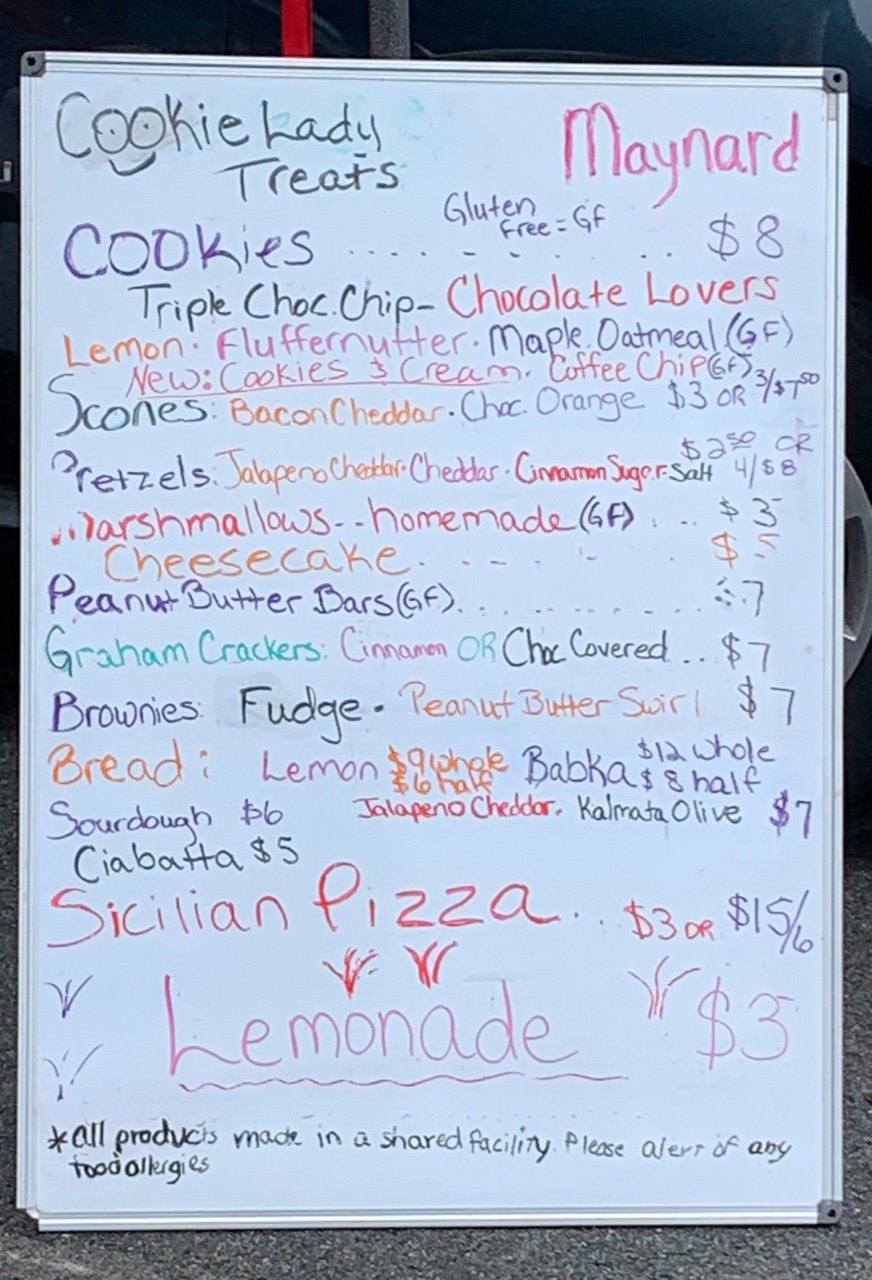 Cookie Lady
Treats
Maynard
Gluten
Free = GF
COOKies ........ $8
Triple Choc. Chip - Chocolate Lovers
Lemon · Fluffernutter · Maple Oatmeal (GF)
New: Cookies & Cream. Coffee Chip (GF)
Scones: Bacon Cheddar · Choc. Orange $3 OR 3/$7.50
Pretzels: Jalapeno Cheddar · Cheddar · Cinnamon Sugar · Salt $2.50 OR 4/$8
Marshmallows -- homemade (GF) ... $3
Cheesecake ..... $5
Peanut Butter Bars (GF) ........ 7
Graham Crackers: Cinnamon OR Choc Covered .. $7
Brownies: Fudge · Peanut Butter Swirl $7
Bread: Lemon $9 whole $6 half Babka $12 whole $8 half
Sourdough $6 Jalapeno Cheddar. Kalmata Olive $7
Ciabatta $5
Sicilian Pizza .. $3 OR $15/6
Lemonade $3
*all products made in a shared facility. Please alert of any
food allergies